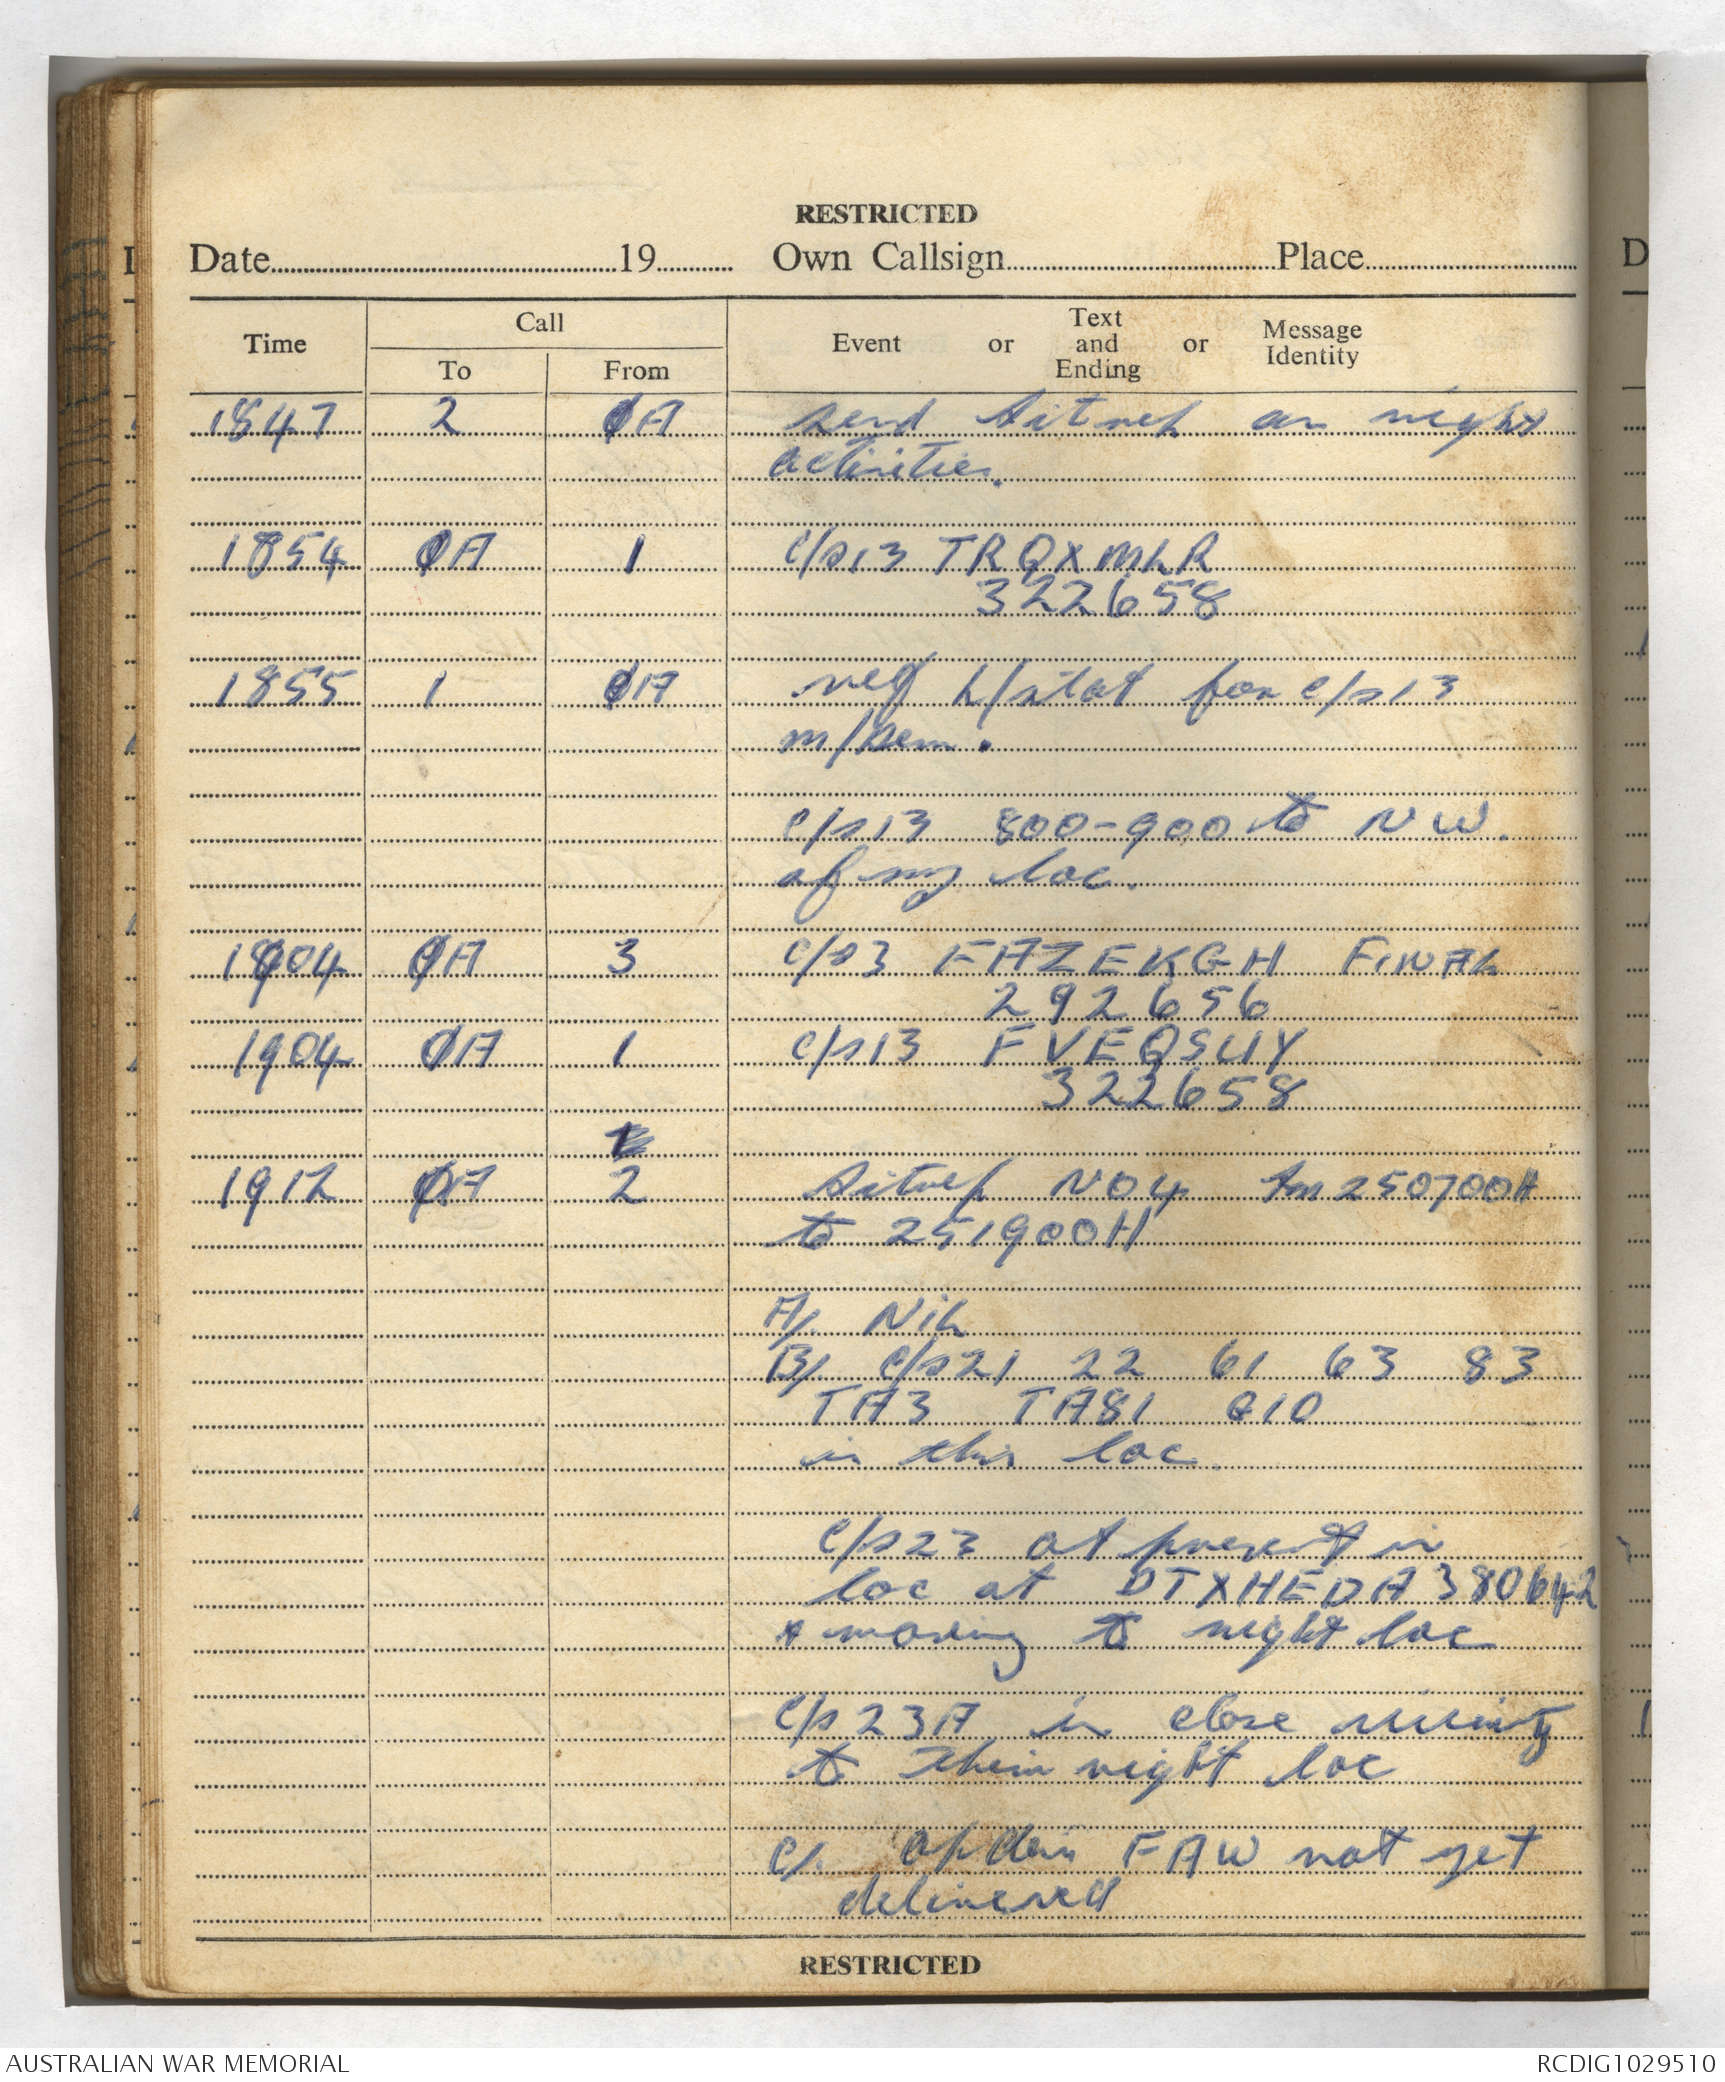 RESTRICTED
Date 19 Own Callsign Place
Time Call Event or Text and Ending or Message Identity
To From
1847 2 ØA send Sitrep on night
activities.
1854 ØA 1 c/s13 TRQXMLR
322658
1855 1 ØA neg h/stat for c/s13
m/sem.
c/s13 800-900 to NW.
of my loc.
1904 ØA 3 c/s3 FAZEKGH FINAL
292656
1904 ØA 1 c/s13 FVEQSUY
322658
1912 ØA 2 Sitrep NO4 fm 250700H
to 251900H
A/. NiL
B/. c/s21 22 61 63 83
TA3 TA81 G10
in this loc.
c/s23 at present in
loc at DTXHEDA 380642
+ moving to night loc
c/s 23A in close
to their night loc
C/. FAW not yet
delivered
RESTRICTED
AUSTRALIAN WAR MEMORIAL RCDIG1029510